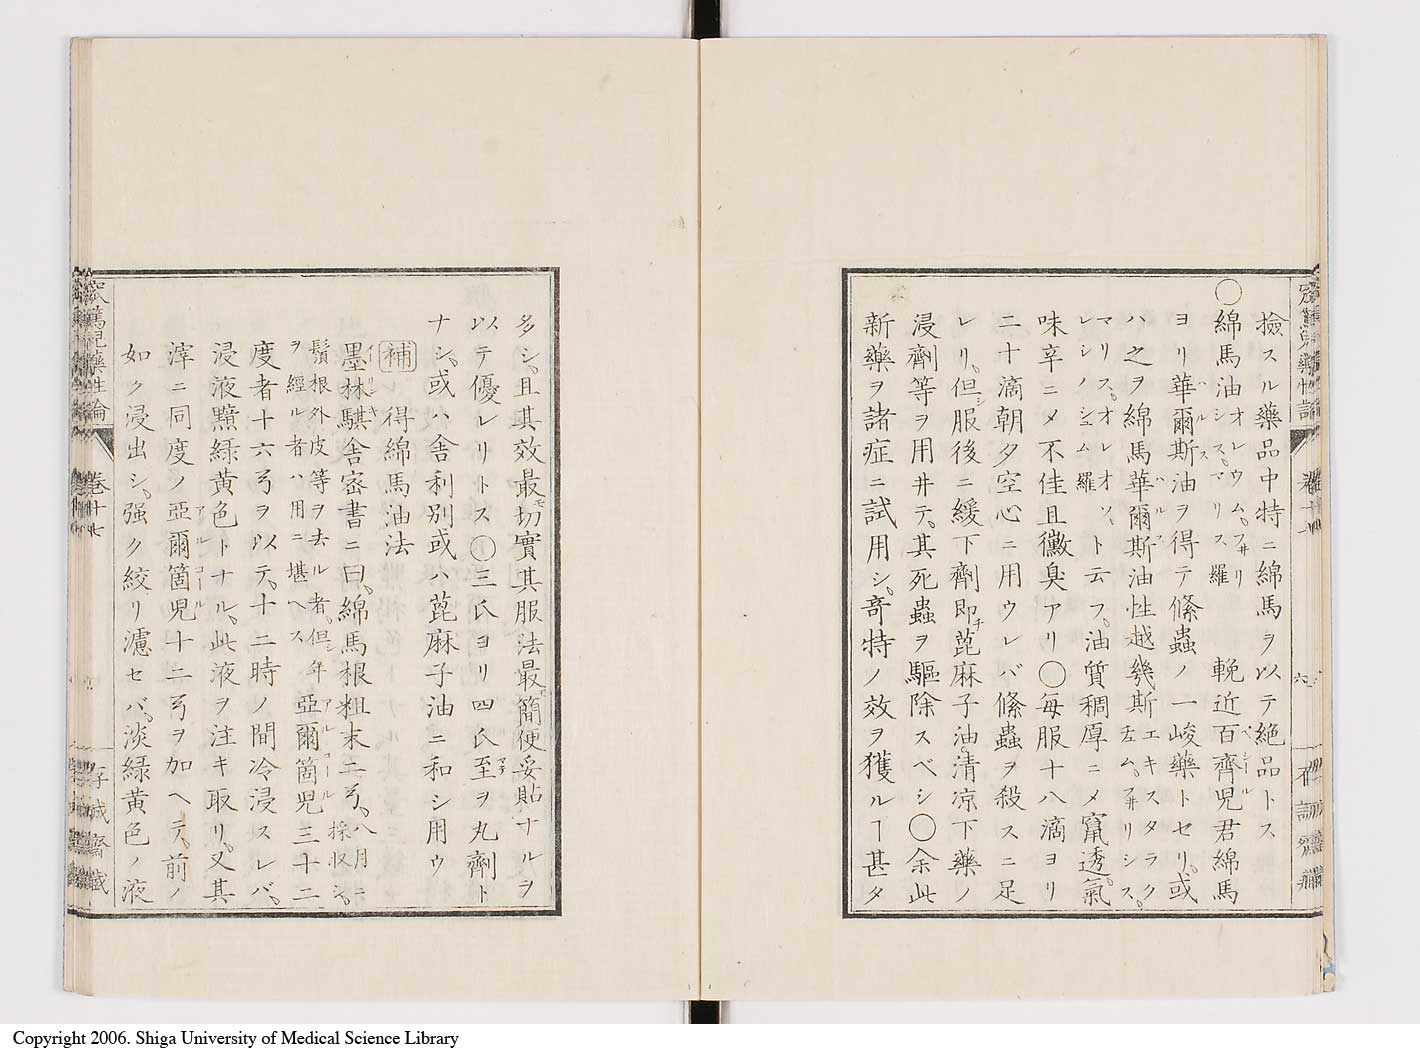 撿スル藥品中特ニ綿馬ヲ以テ絶品トス
〇綿馬油オレウム。フヰリシス。マリス羅 輓近百齊児君綿馬
ヨリ華爾斯油ヲ得テ絛蟲ノ一峻藥トセリ。或
ハ之ヲ綿馬華爾斯油性越幾斯エキスタラクテュム。フヰリシス。
マリス。オレオソ。ト云フ。油質稠厚ニメ竄透。氣
レシノシュム羅
味辛ニメ不佳且黴臭アリ〇毎服十八滴ヨリ
二十滴朝夕空心ニ用ウレバ絛蟲ヲ殺スニ足
レリ。但シ服後ニ緩下劑即チ蓖麻子油。清凉下藥ノ
浸劑等ヲ用井テ。其死蟲ヲ驅除スベシ〇余此
新藥ヲ諸症ニ試用シ。竒特ノ效ヲ獲ルヿ甚タ
多シ。且其效最モ切實其服法最モ簡便妥貼ナルヲ
以テ優レリトス〇三氏ヨリ四氏至マテヲ丸劑ト
ナシ。或ハ舎利別或ハ蓖麻子油ニ和シ用ウ
補 得綿馬油法
墨林騏舎密書ニ曰。綿馬根粗末二弓。八月ニ採収シ。
鬚根外皮等ヲ去ル者。但シ年
ヲ經ル者ハ用ニ堪ヘス 亞爾箇児三十二
度者十六弓ヲ以テ。十二時ノ間冷浸スレバ。
浸液黯緑黄色トナル。此液ヲ注キ取リ。又其
滓ニ同度ノ亞爾箇児十二弓ヲ加ヘテ。前ノ
如ク浸出シ。强ク絞リ濾セバ。淡緑黄色ノ液
窊篤児藥性論
卷十七
Copyright 2006. Shiga University of Medical Science Library